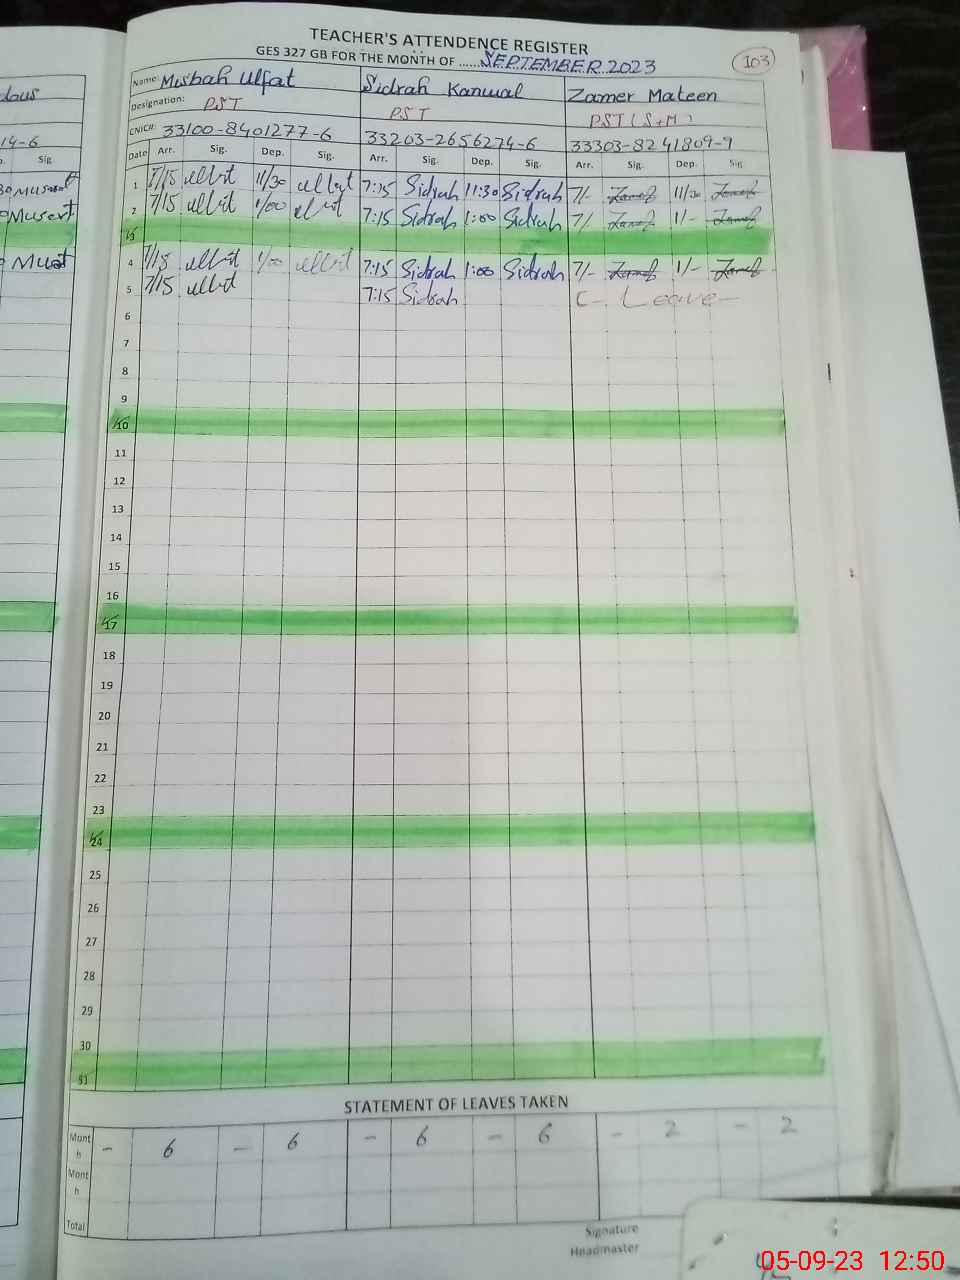 TEACHER'S ATTENDENCE REGISTER
GES 327 GB FOR THE MONTH OF ......SEPTEMBER 2023
103
Name: Musbah Ulfat Sidrah Kanwal Zamer Mateen
Designation: PST PST PST (S+M)
CNIC#: 33100-8401277-6 33203-2656274-6 33303-8241809-9
Date Arr. Sig. Dep. Sig. Arr. Sig. Dep. Sig. Arr. Sig. Dep. Sig
1 7/15 11/30 7:15 Sidrah 11:30 Sidrah 7/- 11/30
2 7/15 1/00 7:15 Sidrah 1:00 Sidrah 7/- 1/-
3
4 7/15 1/00 7:15 Sidrah 1:00 Sidrah 7/- 1/-
5 7/15 7:15 Sidrah C- Leave-
6
7
8
9
10
11
12
13
14
15
16
17
18
19
20
21
22
23
24
25
26
27
28
29
30
31
STATEMENT OF LEAVES TAKEN
Month - 6 - 6 - 6 - 6 - 2 - 2
Month
Total
Signature
Headmaster
14-6
Sig.
05-09-23 12:50